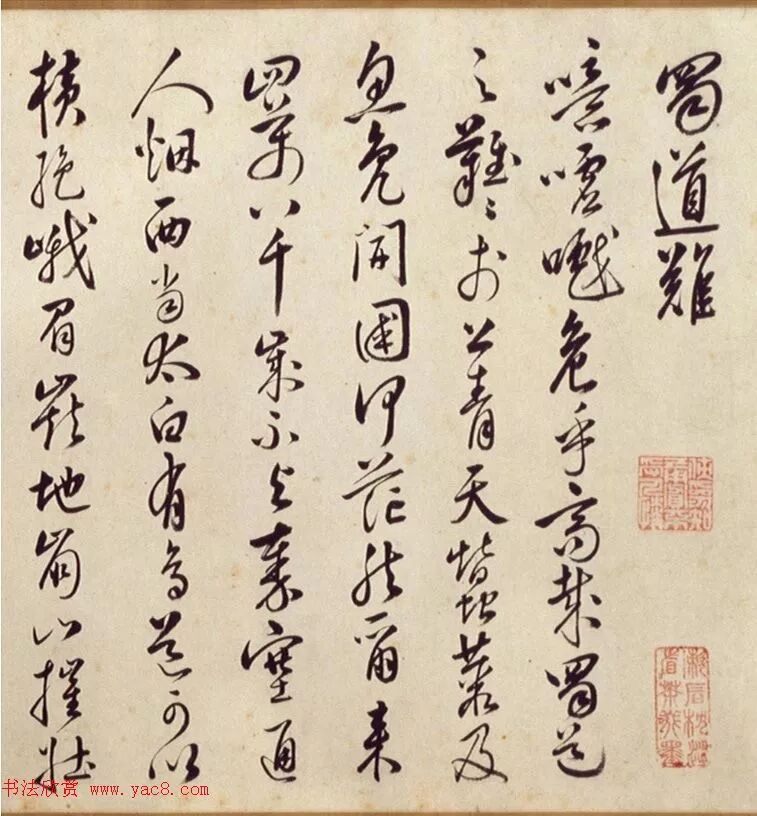 蜀道難
噫嘘嚱危乎高哉蜀道
之難々於上青天蠶叢及
魚鳧開國何茫然爾来
四萬八千歲不与秦塞通
人烟西當太白有鳥道可以
横絶峨眉巔地崩山摧壮
书法欣赏 www.yac8.com